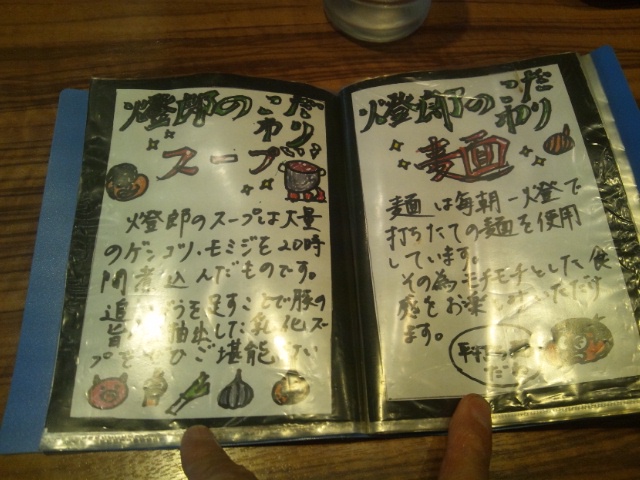 燈郎の こだわり
スープ
燈郎のスープは大量
のゲンコツ、モミジを20時
間煮込んだものです。
を足すことで豚の
旨 した乳化ス
プをぜひご堪能 い
燈郎の こだわり
麺
麺は毎朝一火燈で
打ちたての麺を使用
しています。
その為モチモチとした食
感をお楽しみいただけ
ます。